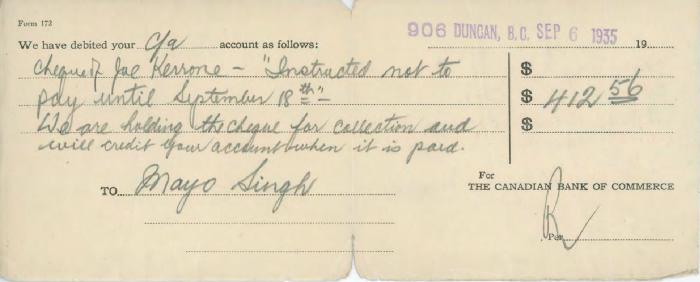 Form 172
906 DUNCAN, B.C. SEP 6 1935 19
We have debited your c/a account as follows:
Cheque of Joe Kerrone - "Instructed not to
pay until September 18th"-
We are holding the cheque for collection and
will credit your account when it is paid.
$
$ 412 56
$
TO Mayo Singh
For
THE CANADIAN BANK OF COMMERCE
Per